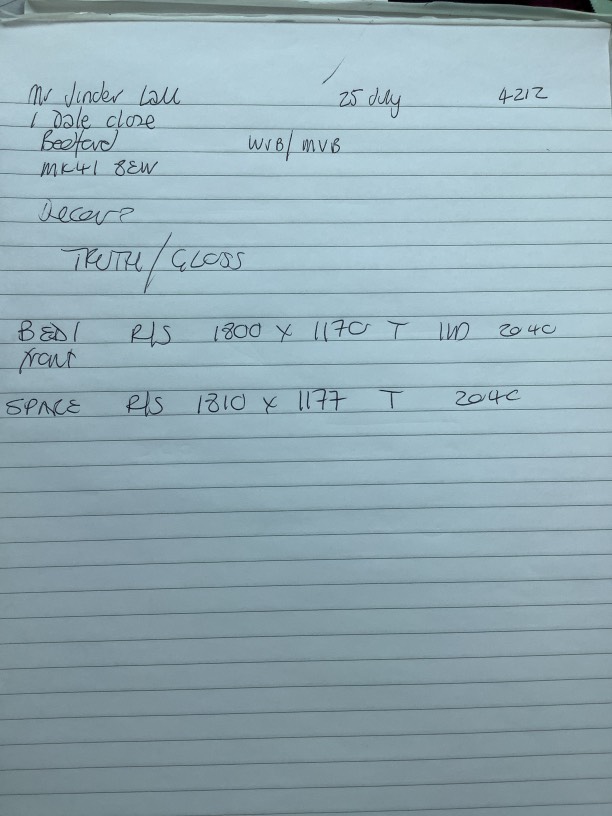 Mr Jinder Lall 25 July 4212
1 Dale close
Bedford WVB/MVB
MK41 8EW
Decora
TRUTH/GLOSS
BED1 R/S 1800 x 1170 T IND 2040
front
SPACE R/S 1810 x 1177 T 2040